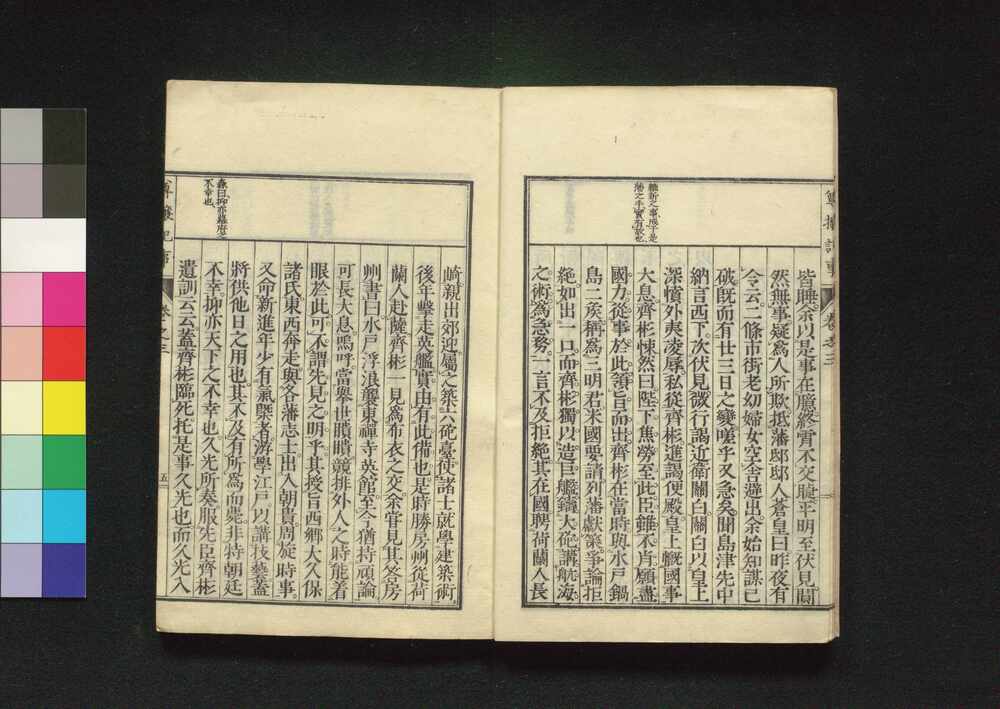 尊攘記事
卷之三
維新之事成于是
藩之手實有故也
皆聰余以是事在膺終宵不交睫平明至伏見闃
然無事疑爲人所欺抵藩邸邸人蒼皇曰昨夜有
令云二條市街老幼婦女空舍避出余始知謀已
破既而有廿三日之變嗟乎又急矣聞島津先中
納言西下次伏見微行謁近衛關白關白以皇上
深憤外夷凌辱私從齊彬進謁便殿皇上慨國事
大息齊彬悚然曰陛下焦勞至此臣雖不肖願盡
國力從事於此領旨而出齊彬在當時與水戶鍋
島二矦稱爲三明君米國要請列藩獻策爭論拒
絶如出一口而齊彬獨以造巨艦鑄大砲講航海
之術爲急務一言不及拒絶其在國聘荷蘭人長
崎親出郊迎屬之築六砲臺使諸士就學建築術
後年擊走英艦實由有此備也是時勝房州從荷
蘭人赴薩齊彬一見爲布衣之交余甞見其答房
州書曰水戶浮浪襲東禪寺英館至今猶持頑論
可長大息嗚呼當舉世聵聵競排外人之時能着
眼於此可不謂先見之明乎其授旨西郷大久保
諸氏東西奔走與各藩志士出入朝貴周旋時事
又命新進年少有氣槩者游學江戶以講技藝蓋
將供他日之用也其不及有所爲而斃非特朝廷
不幸抑亦天下之不幸也久光所奏服先臣齊彬
遺訓云云蓋齊彬臨死托是事久光也而久光入
森曰抑亦薩府之
不幸也
尊攘記事
卷之三
五